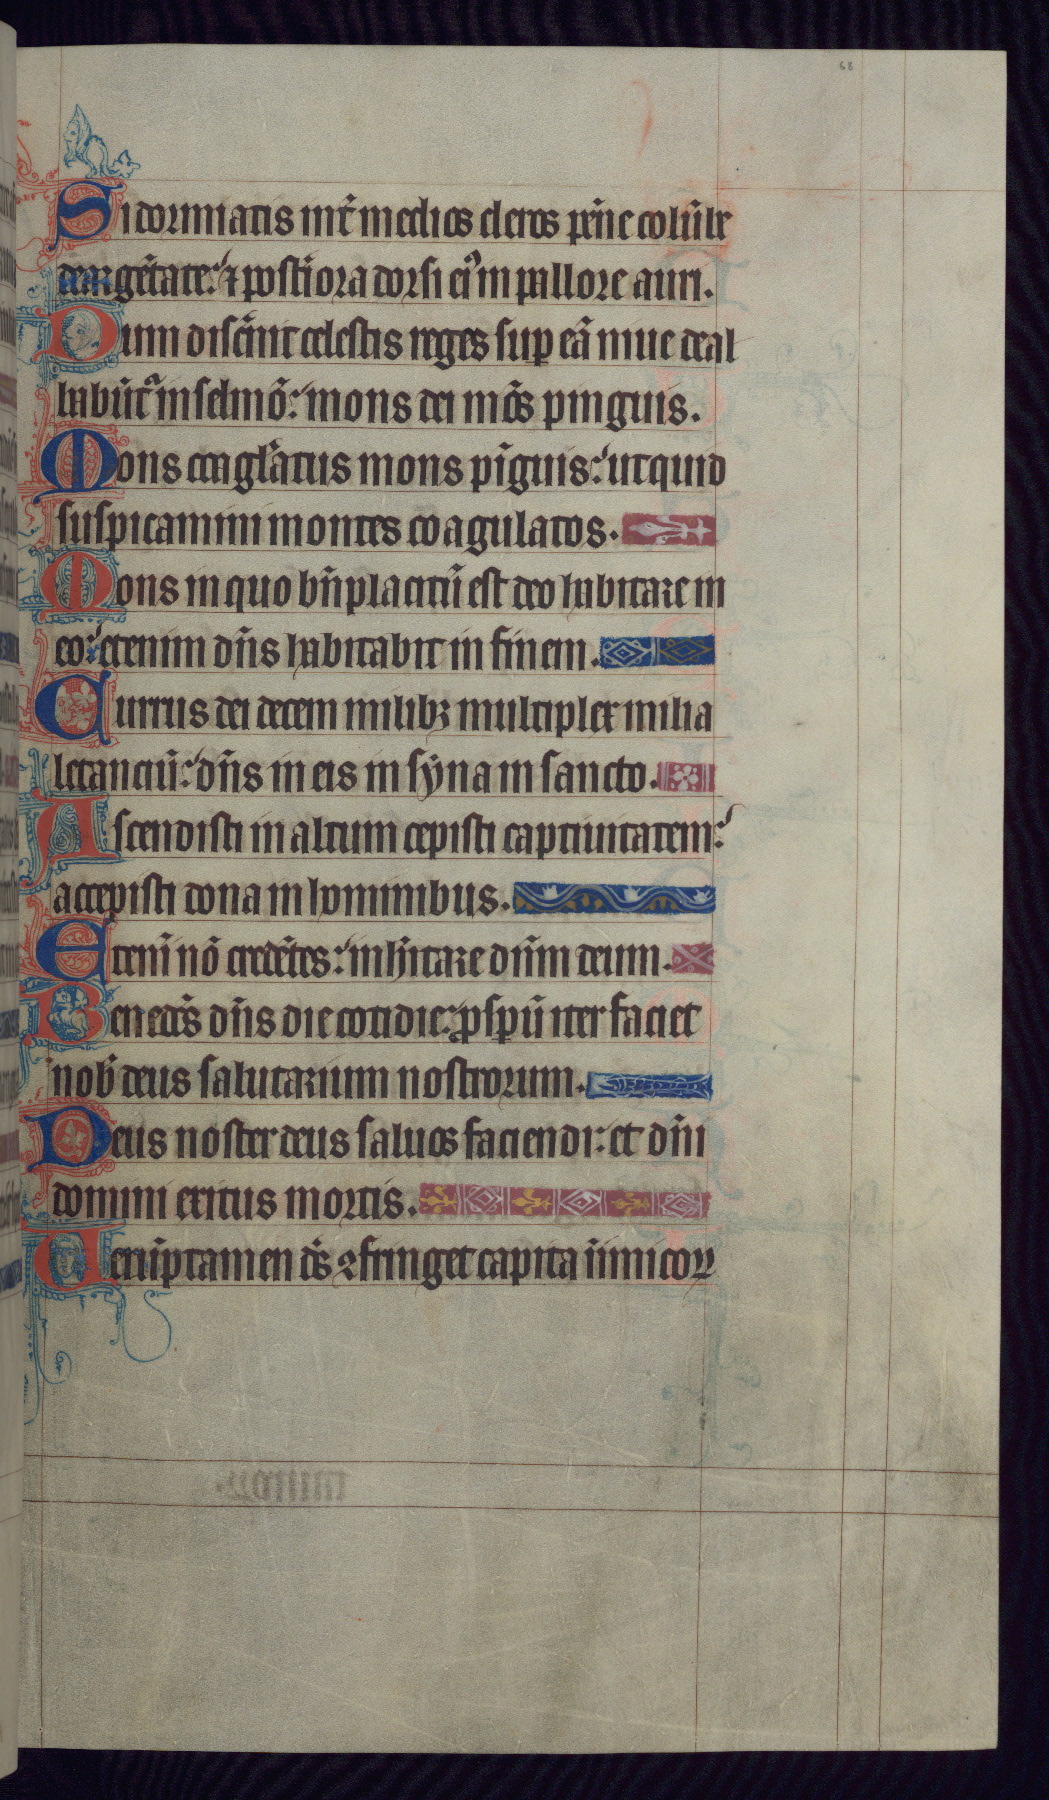 68
Si dormiatis int̄ medios cleros pēne colūbe
deargētate: ⁊ post̄iora dorsi ei᷒ in pallore auri.
Dum discernit celestis reges sup eā niue deal
babūt᷑ in selmō: mons dei mōs pinguis.
Mons coagl̄atus mons pīguis: ut quid
suspicamini montes coagulatos.
Mons in quo bn̄placitū est deo habitare in
eo: etenim dn̄s habitabit in finem.
Currus dei decem milibꝫ multiplex milia
letanciū: dn̄s in eis in syna in sancto.
Ascendisti in altum cepisti captiuitatem:
accepisti dona in hominibus.
Etenī nō credētes: inhītare dn̄m deum.
Benedc̄s dn̄s die cotidie: ꝓspū iter faciet
nob̄ deus salutarium nostrorum.
Deus noster deus saluos faciendi: et dn̄i
domini exitus mortis.
Uerūptamen ds̄ ꝯfringet capita īimicoꝝ